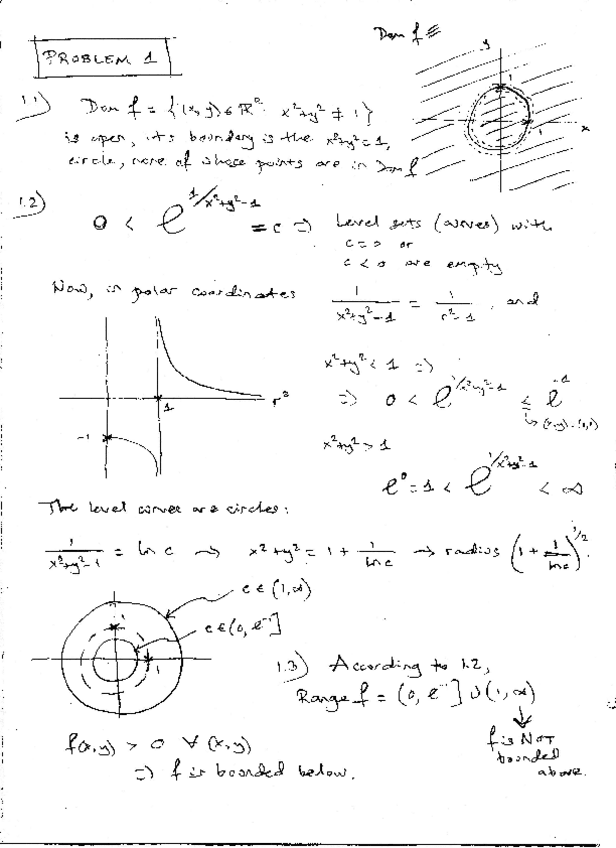 PROBLEM 1
Dom f =
y
1
1
x
1.1) Dom f = {(x, y) ∈ ℝ²: x²+y² ≠ 1}
is open, its boundary is the x²+y²=1,
circle, none of whose points are in Dom f
1.2) 0 < e^{1/x²+y²-1} = c ⇒ Level sets (curves) with
c = 0 or
c < 0 are empty
Now, in polar coordinates 1/(x²+y²-1) = 1/(r²-1), and
1
r²
-1
x²+y² < 1 ⇒
⇒ 0 < e^{1/x²+y²-1} ≤ e^{-1}
(x,y)=(0,0)
x²+y² > 1
e⁰ = 1 < e^{1/x²+y²-1} < ∞
The level curves are circles:
1/(x²+y²-1) = ln c → x²+y² = 1 + 1/(ln c) → radius (1 + 1/(ln c))^{1/2}
c ∈ (1, ∞)
c ∈ (0, e⁻¹]
1
1
1.3) According to 1.2,
Range f = (0, e⁻¹] ∪ (1, ∞)
f is NOT
bounded
above.
f(x,y) > 0 ∀ (x,y)
⇒ f is bounded below.